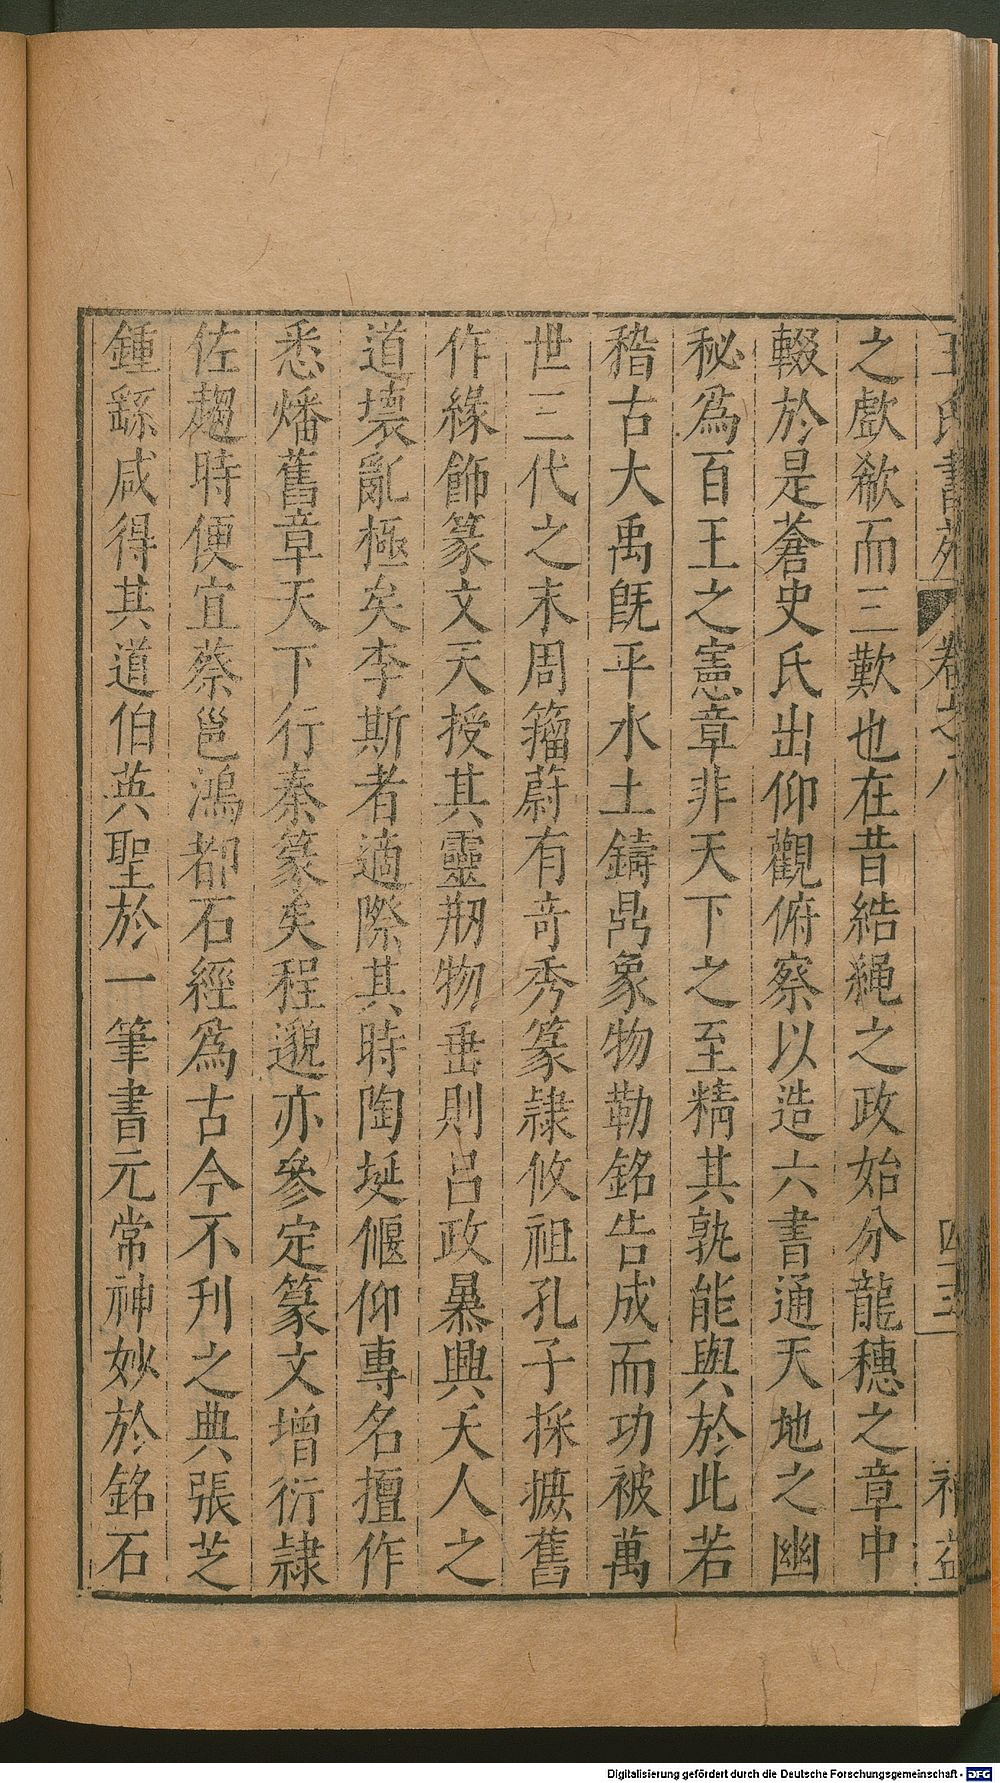 王氏書苑 卷之八 四三 補益
之戲欷而三歎也在昔結繩之政始分龍穗之章中
輟於是蒼史氏出仰觀俯察以造六書通天地之幽
秘爲百王之憲章非天下之至精其孰能與於此若
稽古大禹旣平水土鑄鼎象物勒銘告成而功被萬
世三代之末周籀蔚有奇秀篆隷攸祖孔子採摭舊
作緣飾篆文天授其靈剏物垂則呂政暴興夭人之
道壞亂極矣李斯者適際其時陶埏偃仰專名擅作
悉燔舊章天下行秦篆矣程邈亦參定篆文增衍隷
佐趨時便宜蔡邕鴻都石經爲古今不刋之典張芝
鍾繇咸得其道伯英聖於一筆書元常神妙於銘石
Digitalisierung gefördert durch die Deutsche Forschungsgemeinschaft - DFG